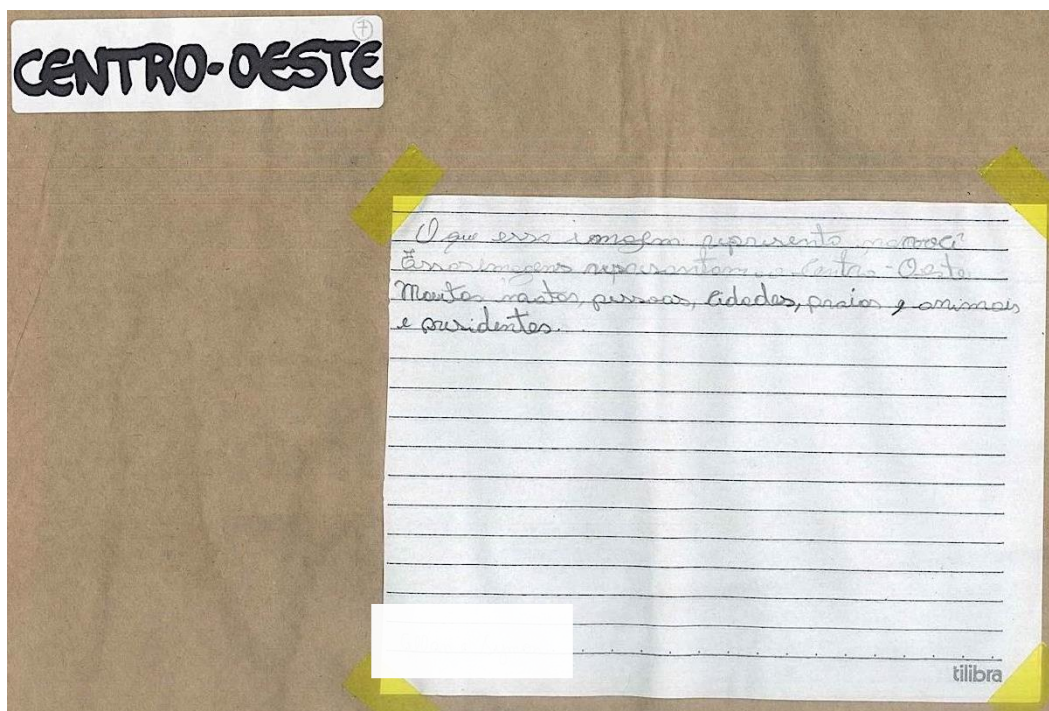 7
CENTRO-OESTE
O que essa imagem representa
Essas imagens representam o Centro-Oeste
Muitos matos, pessoas, cidades, praias e animais
e presidentes.
tilibra